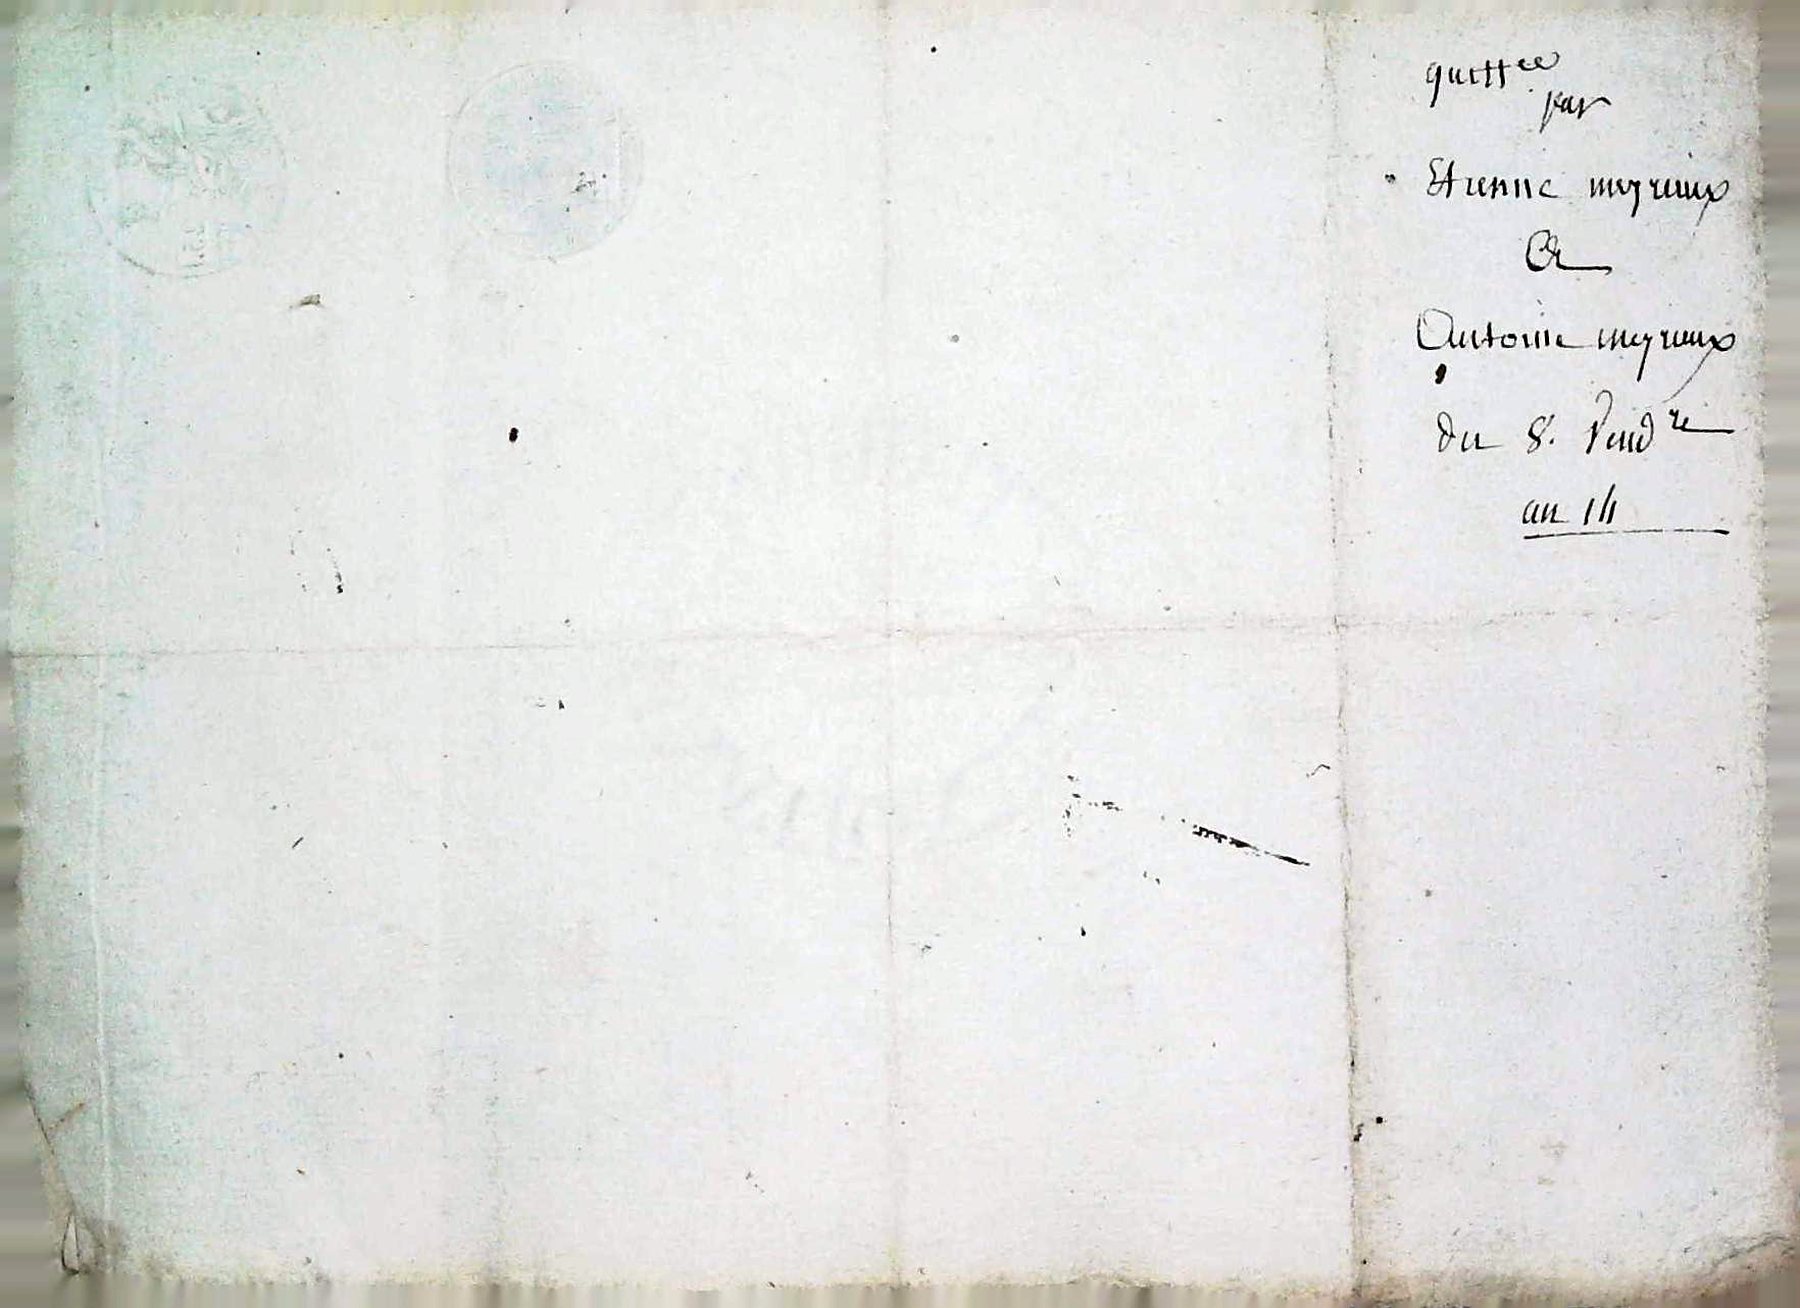 quitt ce
par
Etienne meyrieux
Et
Antoine meyrieux
du 8. Vend re
an 14